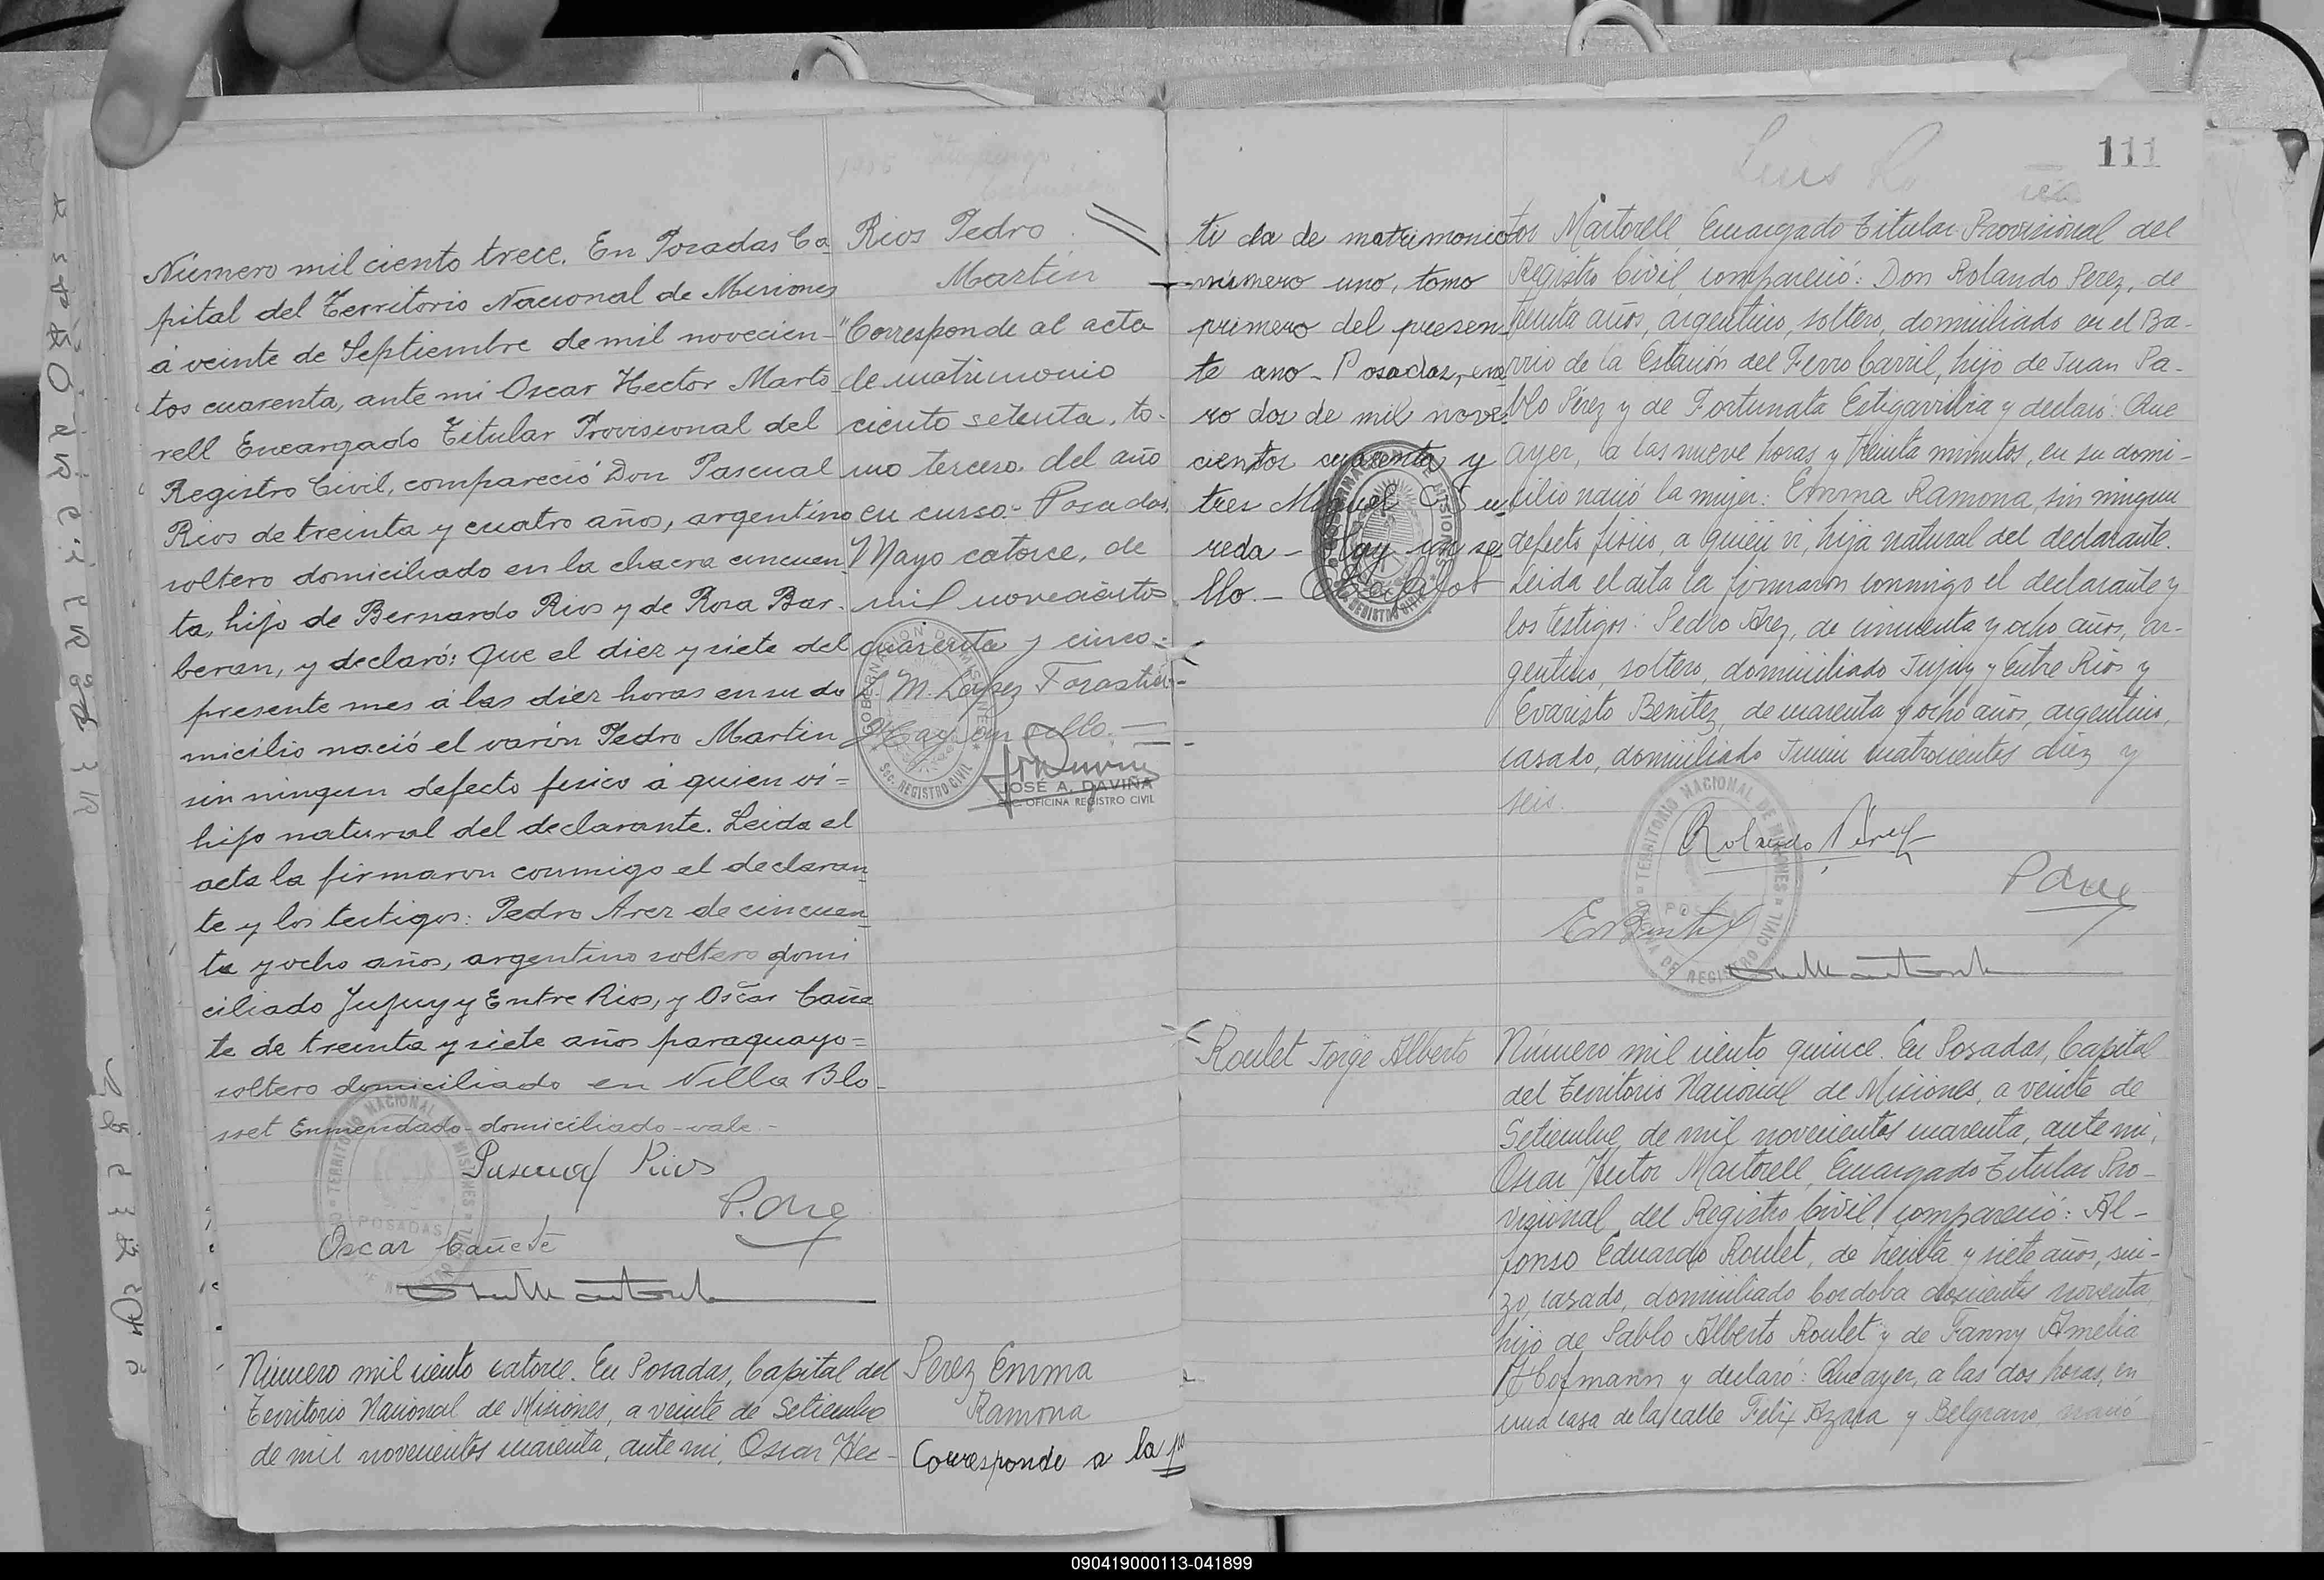 Número mil ciento trece. En Posadas Ca-
pital del Territorio Nacional de Misiones
á veinte de Septiembre de mil novecien-
tos cuarenta, ante mi Oscar Hector Marto
rell Encargado Titular Provisional del
Registro Civil, compareció Don Pascual
Rios de treinta y cuatro años, argentino
soltero domiciliado en la chacra cincuen-
ta, hijo de Bernardo Rios y de Rosa Bar-
beran, y declaró: Que el diez y siete del
presente mes á las diez horas en su do
micilio nació el varón Pedro Martin
sin ningun defecto fisico á quien vi=
hijo natural del declarante. Leida el
acta la firmaron conmigo el declaran
te y los testigos: Pedro Arez de cincuen
ta y ocho años, argentino soltero domi
ciliado Jujuy y Entre Rios, y Oscar Cañe
te de treinta y siete años paraguayo=
soltero domiciliado en Villa Blo-
sset Enmendado-domiciliado-vale-
Pascual Rios
P. Arez
Oscar Cañete
TERRITORIO NACIONAL DE MISIONES
POSADAS
Rios Pedro
Martin
"Corresponde al acta
de matrimonio
ciento setenta, to-
mo tercero. del año
en curso.- Posadas,
Mayo catorce, de
mil novecientos
cuarenta y cinco.-
M. Lopez Forastier-
Hay un sello.-
GOBERNACION DE MISIONES
SEC. REGISTRO CIVIL
JOSÉ A. DAVIÑA
OFICINA REGISTRO CIVIL
Número mil ciento catorce. En Posadas, Capital del
Territorio Nacional de Misiones, a veinte de Setiembre
de mil novecientos cuarenta, ante mi, Oscar Hec-
Perez Emma
Ramona
Corresponde a la par
111
Luis
ti da de matrimonio
número uno, tomo
primero del presen-
te ano - Posadas, ene
ro dos de mil nove-
cientos cuarenta y
tres Miguel
reda - Hay un se
llo -
MISIONES
REGISTRO CIVIL
tor Martorell, Encargado Titular Provisional del
Registro Civil, compareció: Don Rolando Perez, de
treinta años, argentino, soltero, domiciliado en el Ba-
rrio de la Estación del Ferro Carril, hijo de Juan Pa-
blo Pérez y de Fortunata Estigarribia y declaró: Que
ayer, a las nueve horas y treinta minutos, en su domi-
cilio nació la mujer: Emma Ramona, sin ningun
defecto fisico, a quien vi, hija natural del declarante.
Leida el acta la firmaron conmigo el declarante y
los testigos: Pedro Arez, de cincuenta y ocho años, ar-
gentino, soltero, domiciliado Jujuy y Entre Rios y
Evaristo Benitez, de cuarenta y ocho años, argentino,
casado, domiciliado Junin cuatrocientos diez y
seis.
Rolando Pérez
P Arez
E Benitez
TERRITORIO NACIONAL DE MISIONES
REGISTRO CIVIL
Roulet Jorge Alberto
Número mil ciento quince. En Posadas, Capital
del Territorio Nacional de Misiones, a veinte de
Setiembre de mil novecientos cuarenta, ante mi,
Oscar Hector Martorell, Encargado Titular Pro-
visional del Registro Civil, compareció: Al-
fonso Eduardo Roulet, de treinta y siete años, sui-
zo, casado, domiciliado Cordoba doscientos noventa,
hijo de Pablo Alberto Roulet y de Fanny Amelia
Hofmann y declaró: Que ayer, a las dos horas, en
una casa de la calle Felix Azara y Belgrano, nació
090419000113-041899